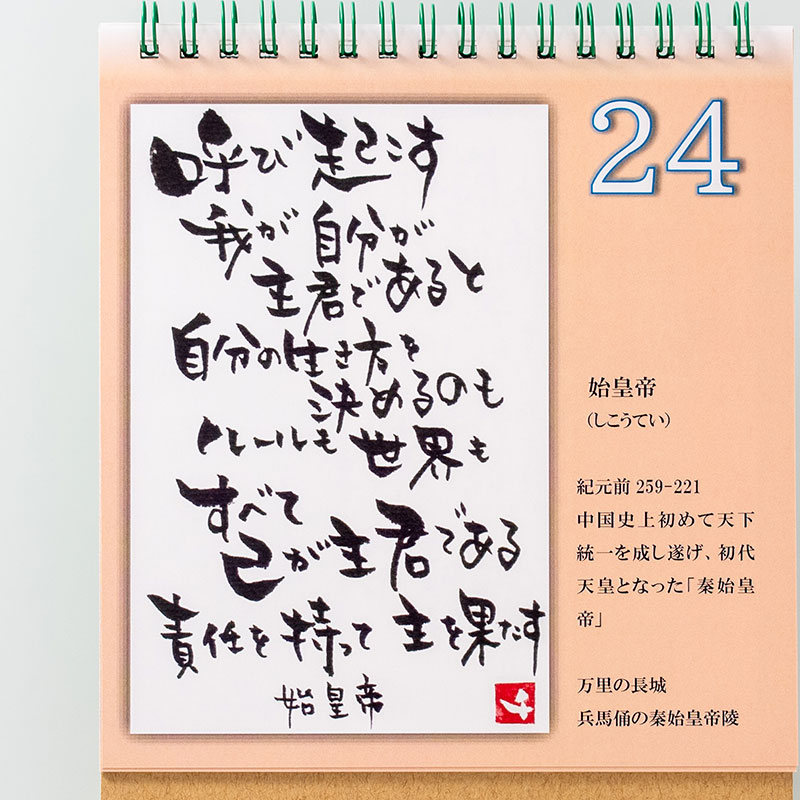 呼び起こす
我が自分が
主君であると
自分の生き方を
決めるのも
ルールも世界も
すべて
己が主君である
責任を持って主を果たす
始皇帝
24
始皇帝
(しこうてい)
紀元前 259-221
中国史上初めて天下
統一を成し遂げ、初代
天皇となった「秦始皇
帝」
万里の長城
兵馬俑の秦始皇帝陵